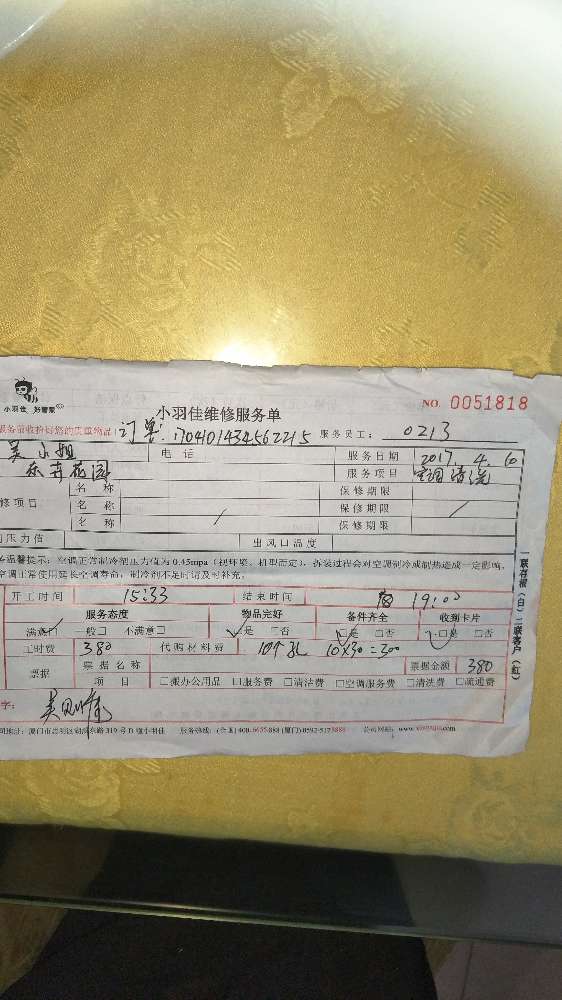 小羽佳 好管家
小羽佳维修服务单
NO 0051818
订单:170401434562215 服务员工: 0213
吴小姐 电话 服务日期 2017.4.
花园 服务项目 空调清洗
名称 保修期限
修项目 名称 保修期限 /
名称 / 保修期限
压力值 出风口温度
温馨提示:空调正常制冷剂压力值为0.45mpa(视环境、机型而定),拆装过程会对空调制冷或制热造成一定影响,
空调正常使用延长空调寿命,制冷剂不足时请及时补充。
开工时间 15:33 结束时间 19:00
服务态度 物品完好 备件齐全 收到卡片
满意□ 一般□ 不满意□ □是 □否 □是 □否 □是 □否
工时费 380 代购材料费 10个孔 10×30=300
票据 票据名称 票据金额 380
项目 □搬办公用品 □服务费 □清洁费 □空调服务费 □清洗费 □疏通费
字:
地址:厦门市思明区湖滨东路319号B 小羽佳 服务热线:(全国)400-6655888(厦门)0592-5175888 公司网址:www.xiaoyujia.com
一联存根(白)二联客户(红)